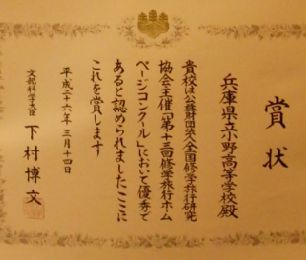 賞状
兵庫県立小野高等学校殿
貴校は公益財団法人全国修学旅行研究
協会主催「第十三回修学旅行ホーム
ページコンクール」において優秀で
あると認められましたここに
これを賞します
平成二十六年三月十四日
文部科学大臣
下村博文